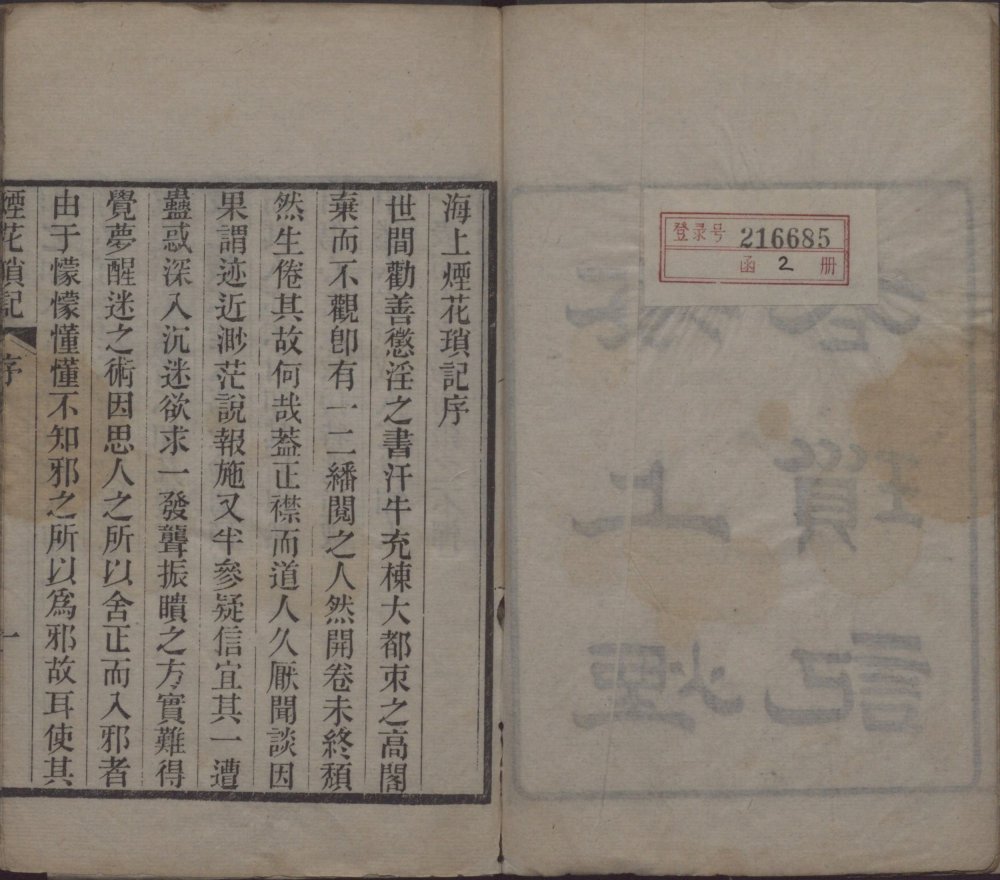 登录号 216685
函 2 册
海上煙花瑣記序
世間勸善懲淫之書汗牛充棟大都束之高閣
棄而不觀卽有一二繙閱之人然開卷未終頽
然生倦其故何哉葢正襟而道人久厭聞談因
果謂迹近渺茫說報施又半參疑信宜其一遭
蠱惑深入沉迷欲求一發聾振聵之方實難得
覺夢醒迷之術因思人之所以舍正而入邪者
由于懞懞懂懂不知邪之所以爲邪故耳使其
煙花瑣記 序 一